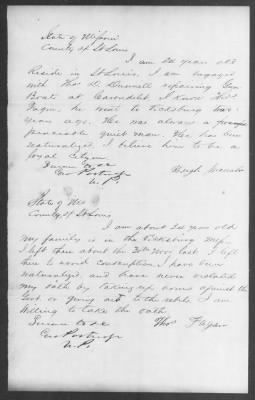 State of Missouri
County of St Louis
I am 50 year old
Reside in St Louis. I am engaged
with Thos D. Dunnell repairing Gun
Boats at Carondelet, I know Thos
Fagan, he went to Vicksburg two
years ago. He was always a
peaceable quiet man. He has been
naturalized I believe him to be a
loyal citizen.
Hugh
State of Mo
County of St Louis
I am about 50 year old
my family is in the Vicksburg Miss
left there about the 20th Nov last I left
there to avoid conscription I have been
naturalized and have never violated
my oath by taking up arms against the
Govt or giving aid to the rebels I am
Willing to take the oath
Thos Fagan